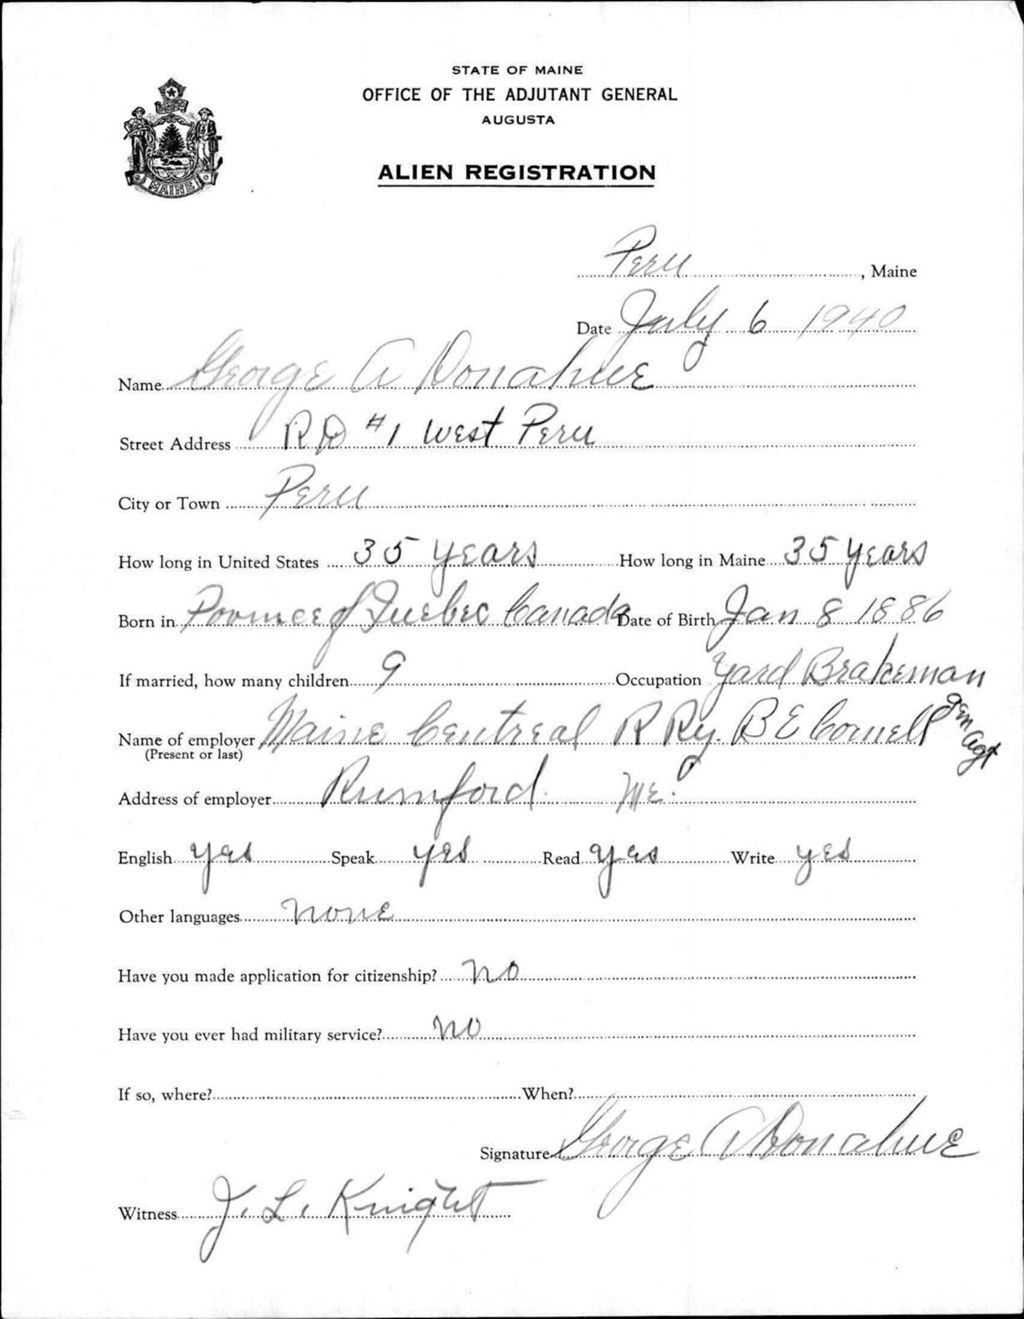 STATE OF MAINE
OFFICE OF THE ADJUTANT GENERAL
AUGUSTA
ALIEN REGISTRATION
MAINE
Peru, Maine
Date July 6 1940
Name George A Donahue
Street Address RD #1 West Peru
City or Town Peru
How long in United States 35 years How long in Maine 35 years
Born in Province of Quebec Canada Date of Birth Jan 8 1886
If married, how many children 9 Occupation Yard Brakeman
Name of employer Maine Centreal R Ry. B E Cornell gen Agt
(Present or last)
Address of employer Rumford Me.
English yes Speak yes Read yes Write yes
Other languages none
Have you made application for citizenship? no
Have you ever had military service? no
If so, where? When?
Signature George A Donahue
Witness J. L. Knight